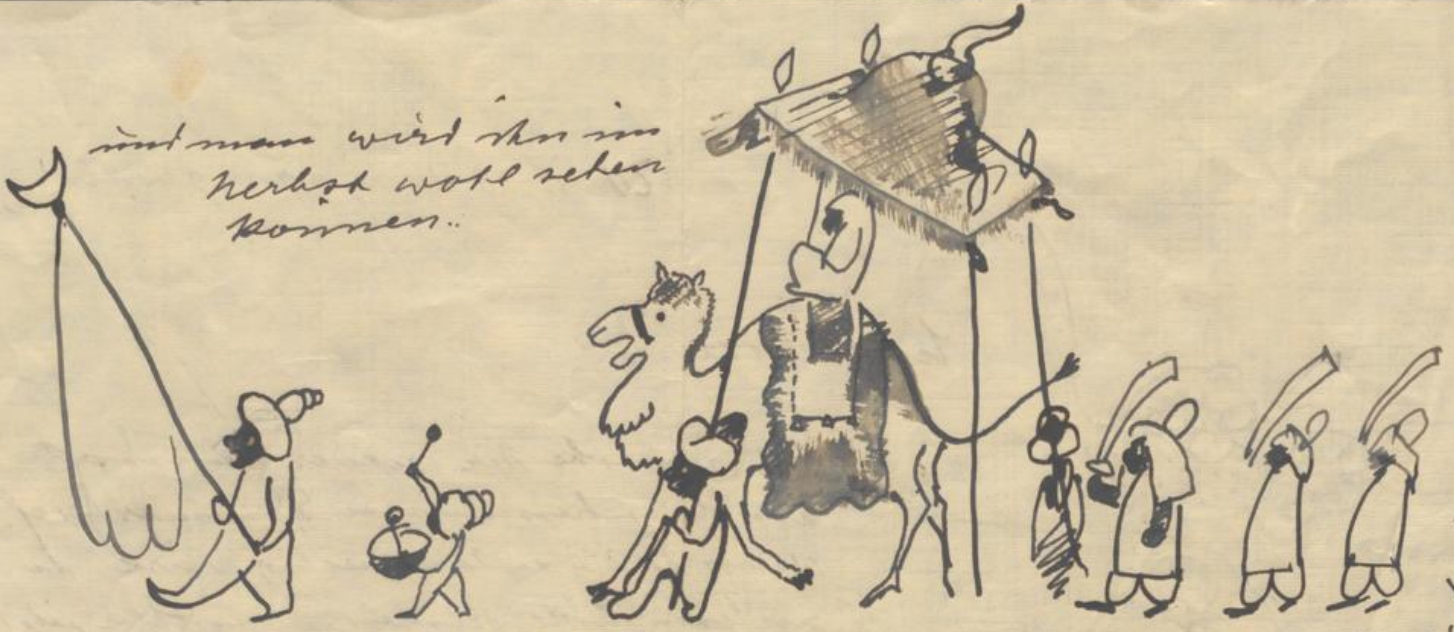 und man wird ihn im
Herbst wohl sehen
können..